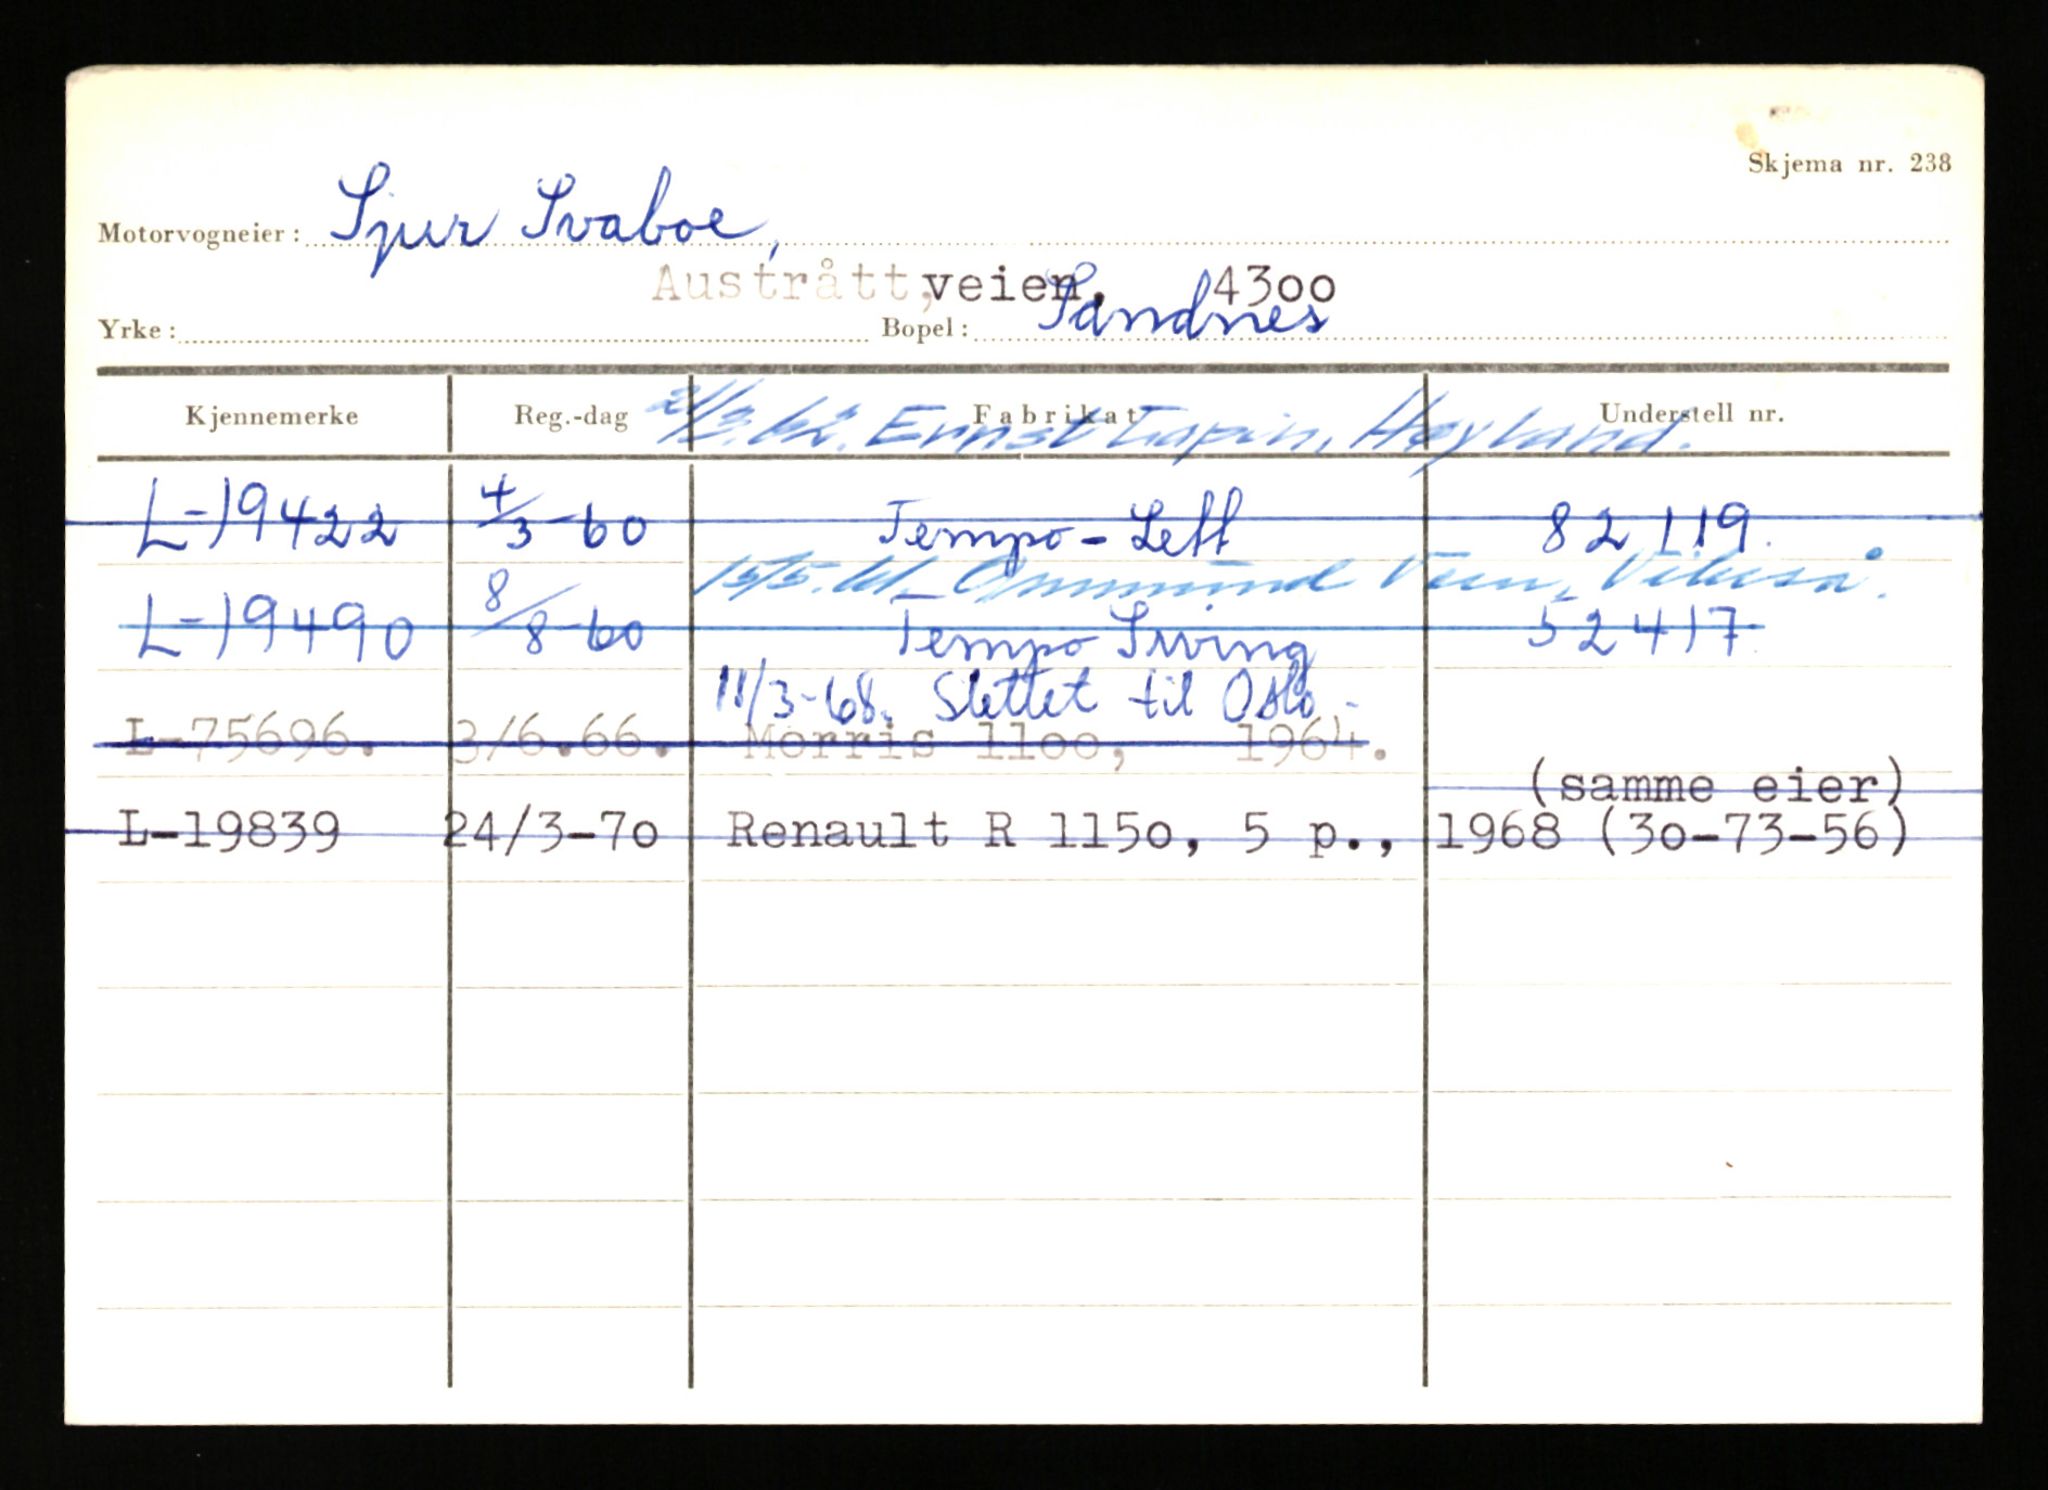 Skjema nr. 238
Motorvogneier: Sjur Svaboe,
Austrått, veien, 4300
Yrke: Bopel: Sandnes
Kjennemerke Reg.-dag Fabrikat Understell nr.
21/3.62. Ernst Tapin, Høyland.
L-19422 4/3-60 Tempo-Lett 82119.
15/5.61. Ommund Vikeså.
L-19490 8/8-60 Tempo Swing 52417
11/3-68. Slettet til Oslo.
L-75696. 3/6.66. Morris 1100, 1964.
(samme eier)
L-19839 24/3-70 Renault R 1150, 5 p., 1968 (30-73-56)